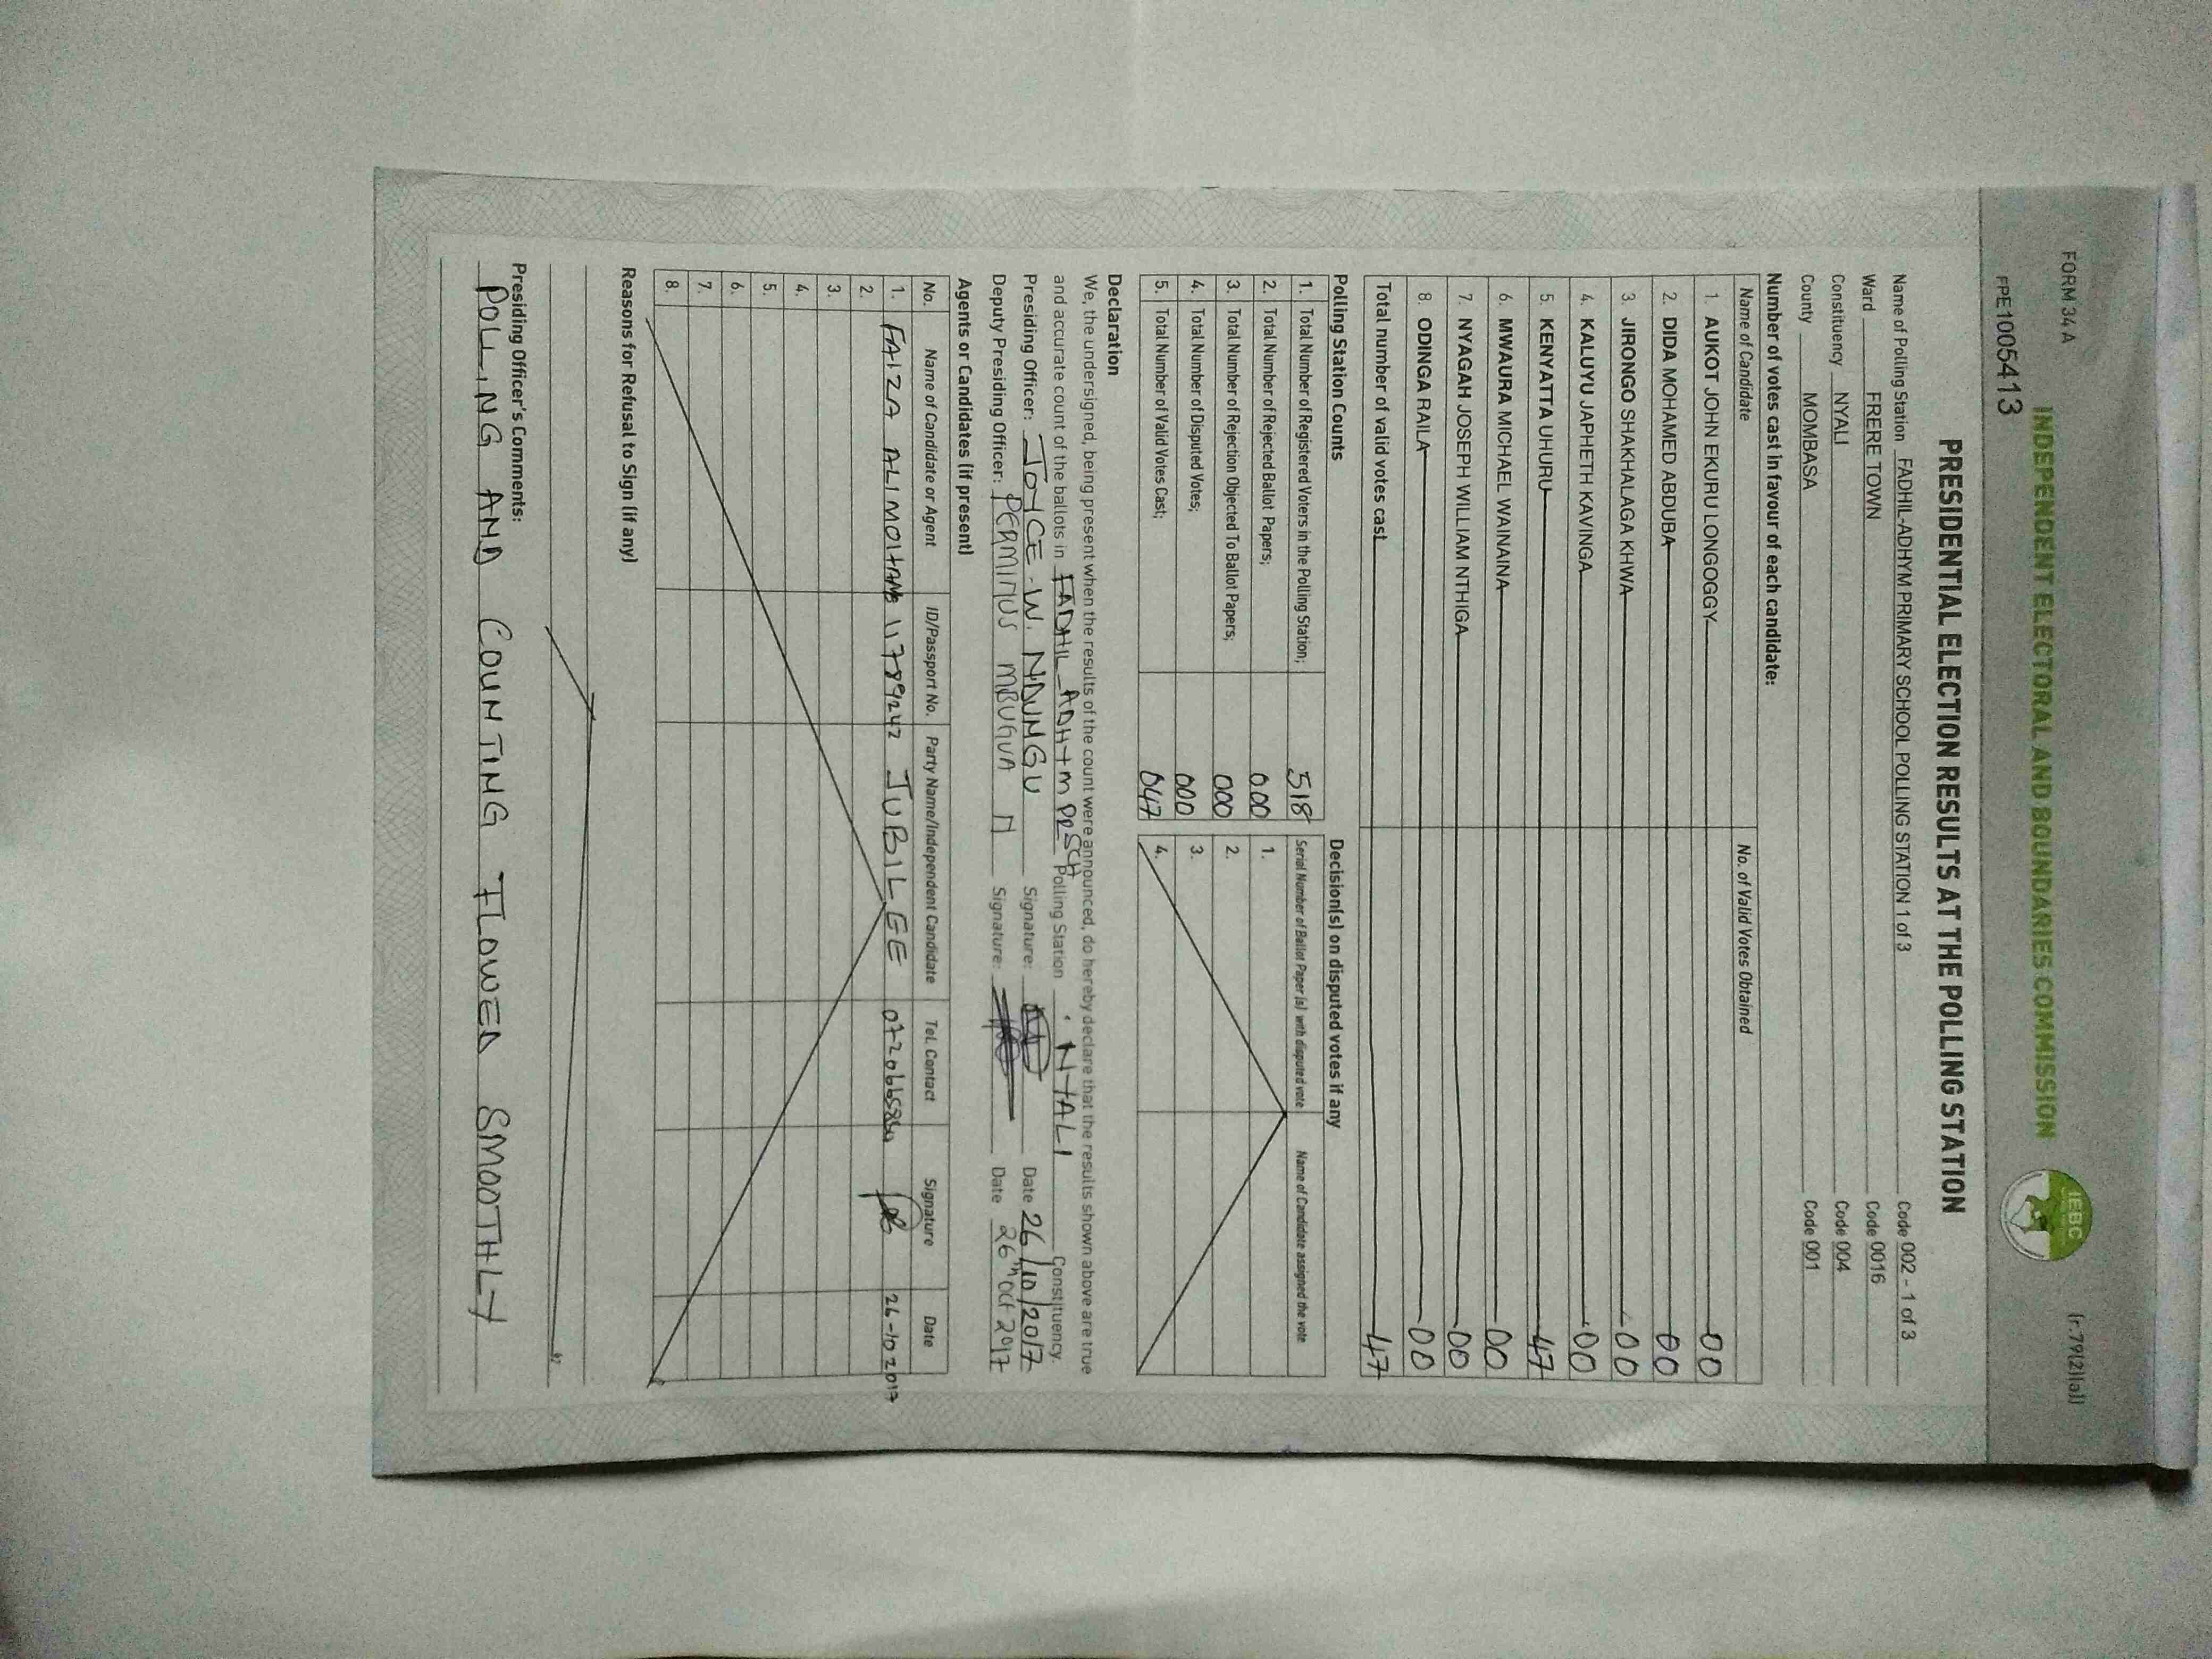 FORM 34 A
(r.79(2)(a))
INDEPENDENT ELECTORAL AND BOUNDARIES COMMISSION
IEBC
FPE1005413
PRESIDENTIAL ELECTION RESULTS AT THE POLLING STATION
Name of Polling Station FADHIL-ADHYM PRIMARY SCHOOL POLLING STATION 1 of 3 Code 002 - 1 of 3
Ward FRERE TOWN Code 0016
Constituency NYALI Code 004
County MOMBASA Code 001
Number of votes cast in favour of each candidate:
Name of Candidate No. of Valid Votes Obtained
1. AUKOT JOHN EKURU LONGOGGY 00
2. DIDA MOHAMED ABDUBA 00
3. JIRONGO SHAKHALAGA KHWA 00
4. KALUYU JAPHETH KAVINGA 00
5. KENYATTA UHURU 47
6. MWAURA MICHAEL WAINAINA 00
7. NYAGAH JOSEPH WILLIAM NTHIGA 00
8. ODINGA RAILA 00
Total number of valid votes cast 47
Polling Station Counts Decision(s) on disputed votes if any
1. Total Number of Registered Voters in the Polling Station; 518 Serial Number of Ballot Paper (s) with disputed vote Name of Candidate assigned the vote
2. Total Number of Rejected Ballot Papers; 000 1.
3. Total Number of Rejection Objected To Ballot Papers; 000 2.
4. Total Number of Disputed Votes; 000 3.
5. Total Number of Valid Votes Cast; 047 4.
Declaration
We, the undersigned, being present when the results of the count were announced, do hereby declare that the results shown above are true
and accurate count of the ballots in FADHIL-ADHYM PR SCH Polling Station NYALI Constituency.
Presiding Officer: JOYCE W. NDUNGU Signature: Date 26/10/2017
Deputy Presiding Officer: PERMINUS MBUGUA N Signature: Date 26th Oct 2017
Agents or Candidates (if present)
No. Name of Candidate or Agent ID/Passport No. Party Name/Independent Candidate Tel. Contact Signature Date
1. FAIZA ALI 11789242 JUBILEE 26-10 2017
2.
3.
4.
5.
6.
7.
8.
Reasons for Refusal to Sign (if any)
Presiding Officer's Comments:
POLLING AND COUNTING FLOWED SMOOTHLY